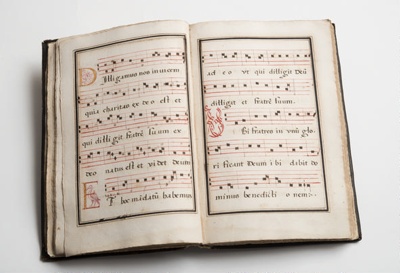 Diligamus nos in uicem
quia charitas ex deo est et
qui diligit fratrẽ suum ex
deo natus est et videt deum
Et hoc mãdatũ habemus
ad eo vt qui diligit deũ
diligit et fratrẽ suum.
Vbi fratres in vnũ glo
rificant deum ibi dabit do
minus benedictionem: